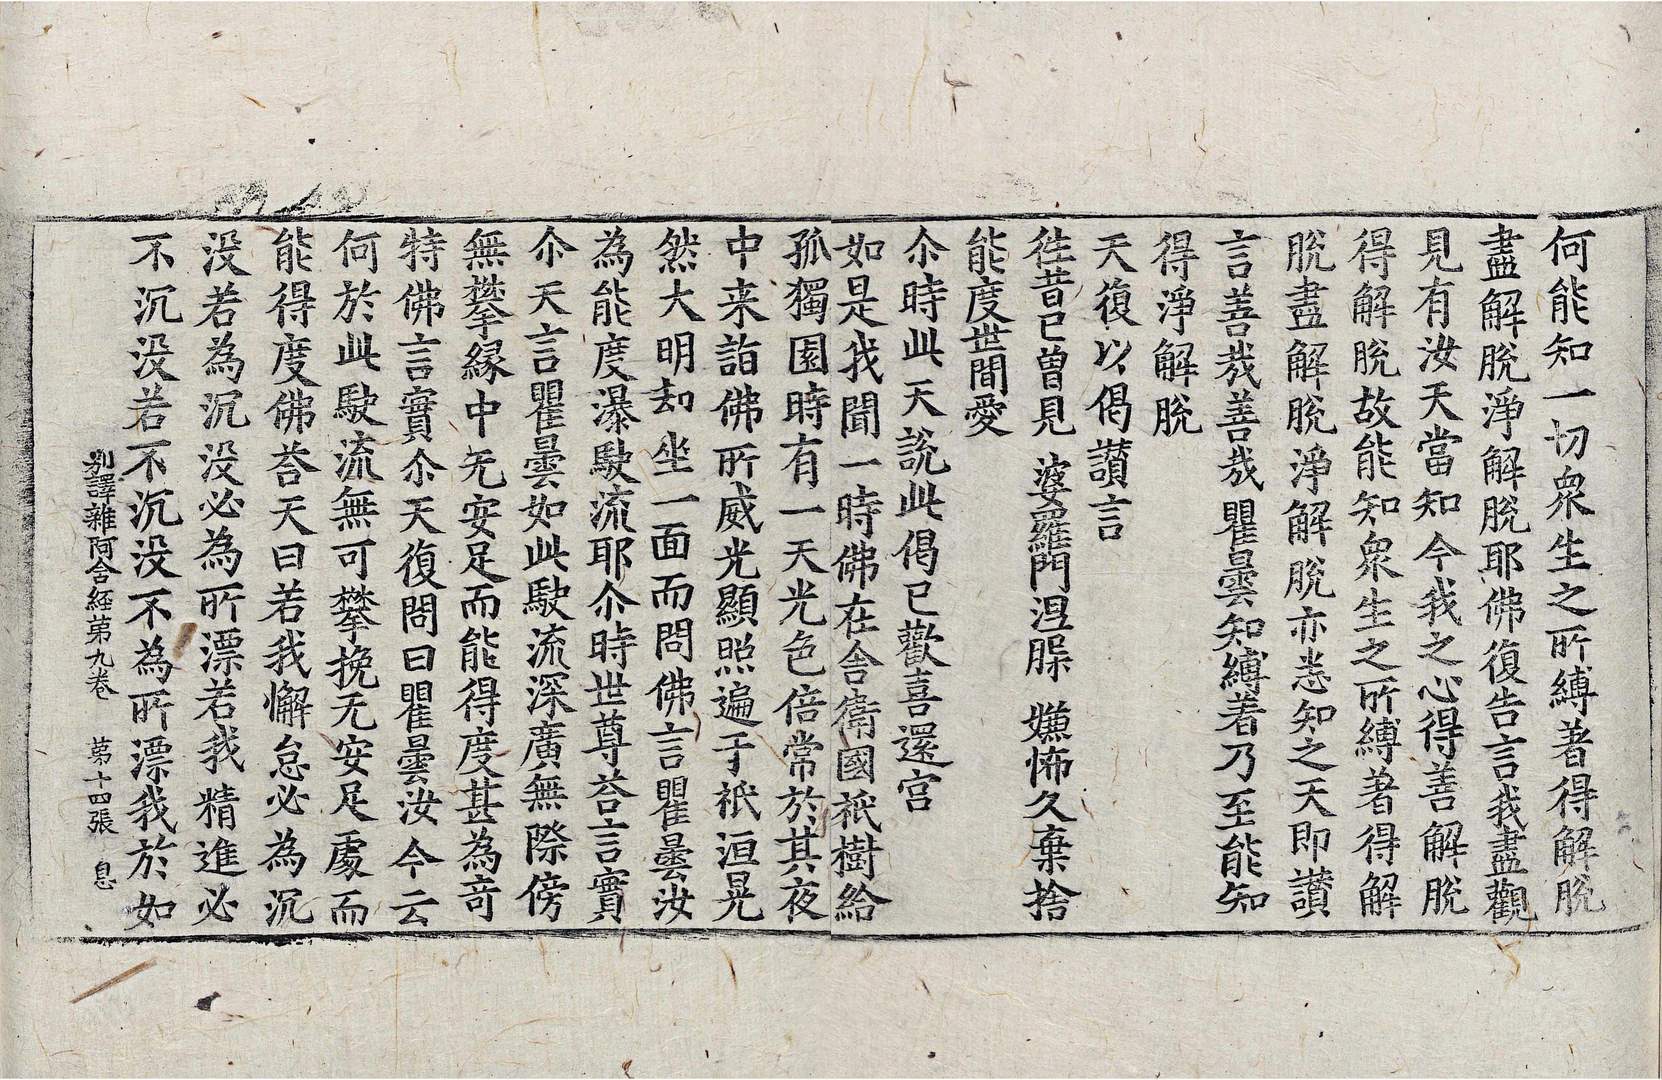 何能知一切衆生之所縛著得解脫
盡解脫淨解脫耶佛復告言我盡觀
見有汝天當知今我之心得善解脫
得解脫故能知衆生之所縛著得解
脫盡解脫淨解脫亦悉知之天即讃
言善哉善哉瞿曇知縛著乃至能知
得淨解脫
天復以偈讃言
徃昔已曽見　婆羅門涅槃　嫌怖久棄捨
能度世間愛
尒時此天說此偈已歡喜還宮
如是我聞一時佛在舍衛國祇樹給
孤獨園時有一天光色倍常於其夜
中来詣佛所威光顯照遍于祇洹晃
然大明却坐一面而問佛言瞿曇汝
為能度瀑駛流耶尒時世尊荅言實
尒天言瞿曇如此駛流深廣無際傍
無攀緣中无安足而能得度甚為竒
特佛言實尒天復問曰瞿曇汝今云
何於此駛流無可攀挽无安足處而
能得度佛荅天曰若我懈怠必為沉
没若為沉没必為所漂若我精進必
不沉没若不沉没不為所漂我於如
別譯雜阿含経第九卷　第十四張　息